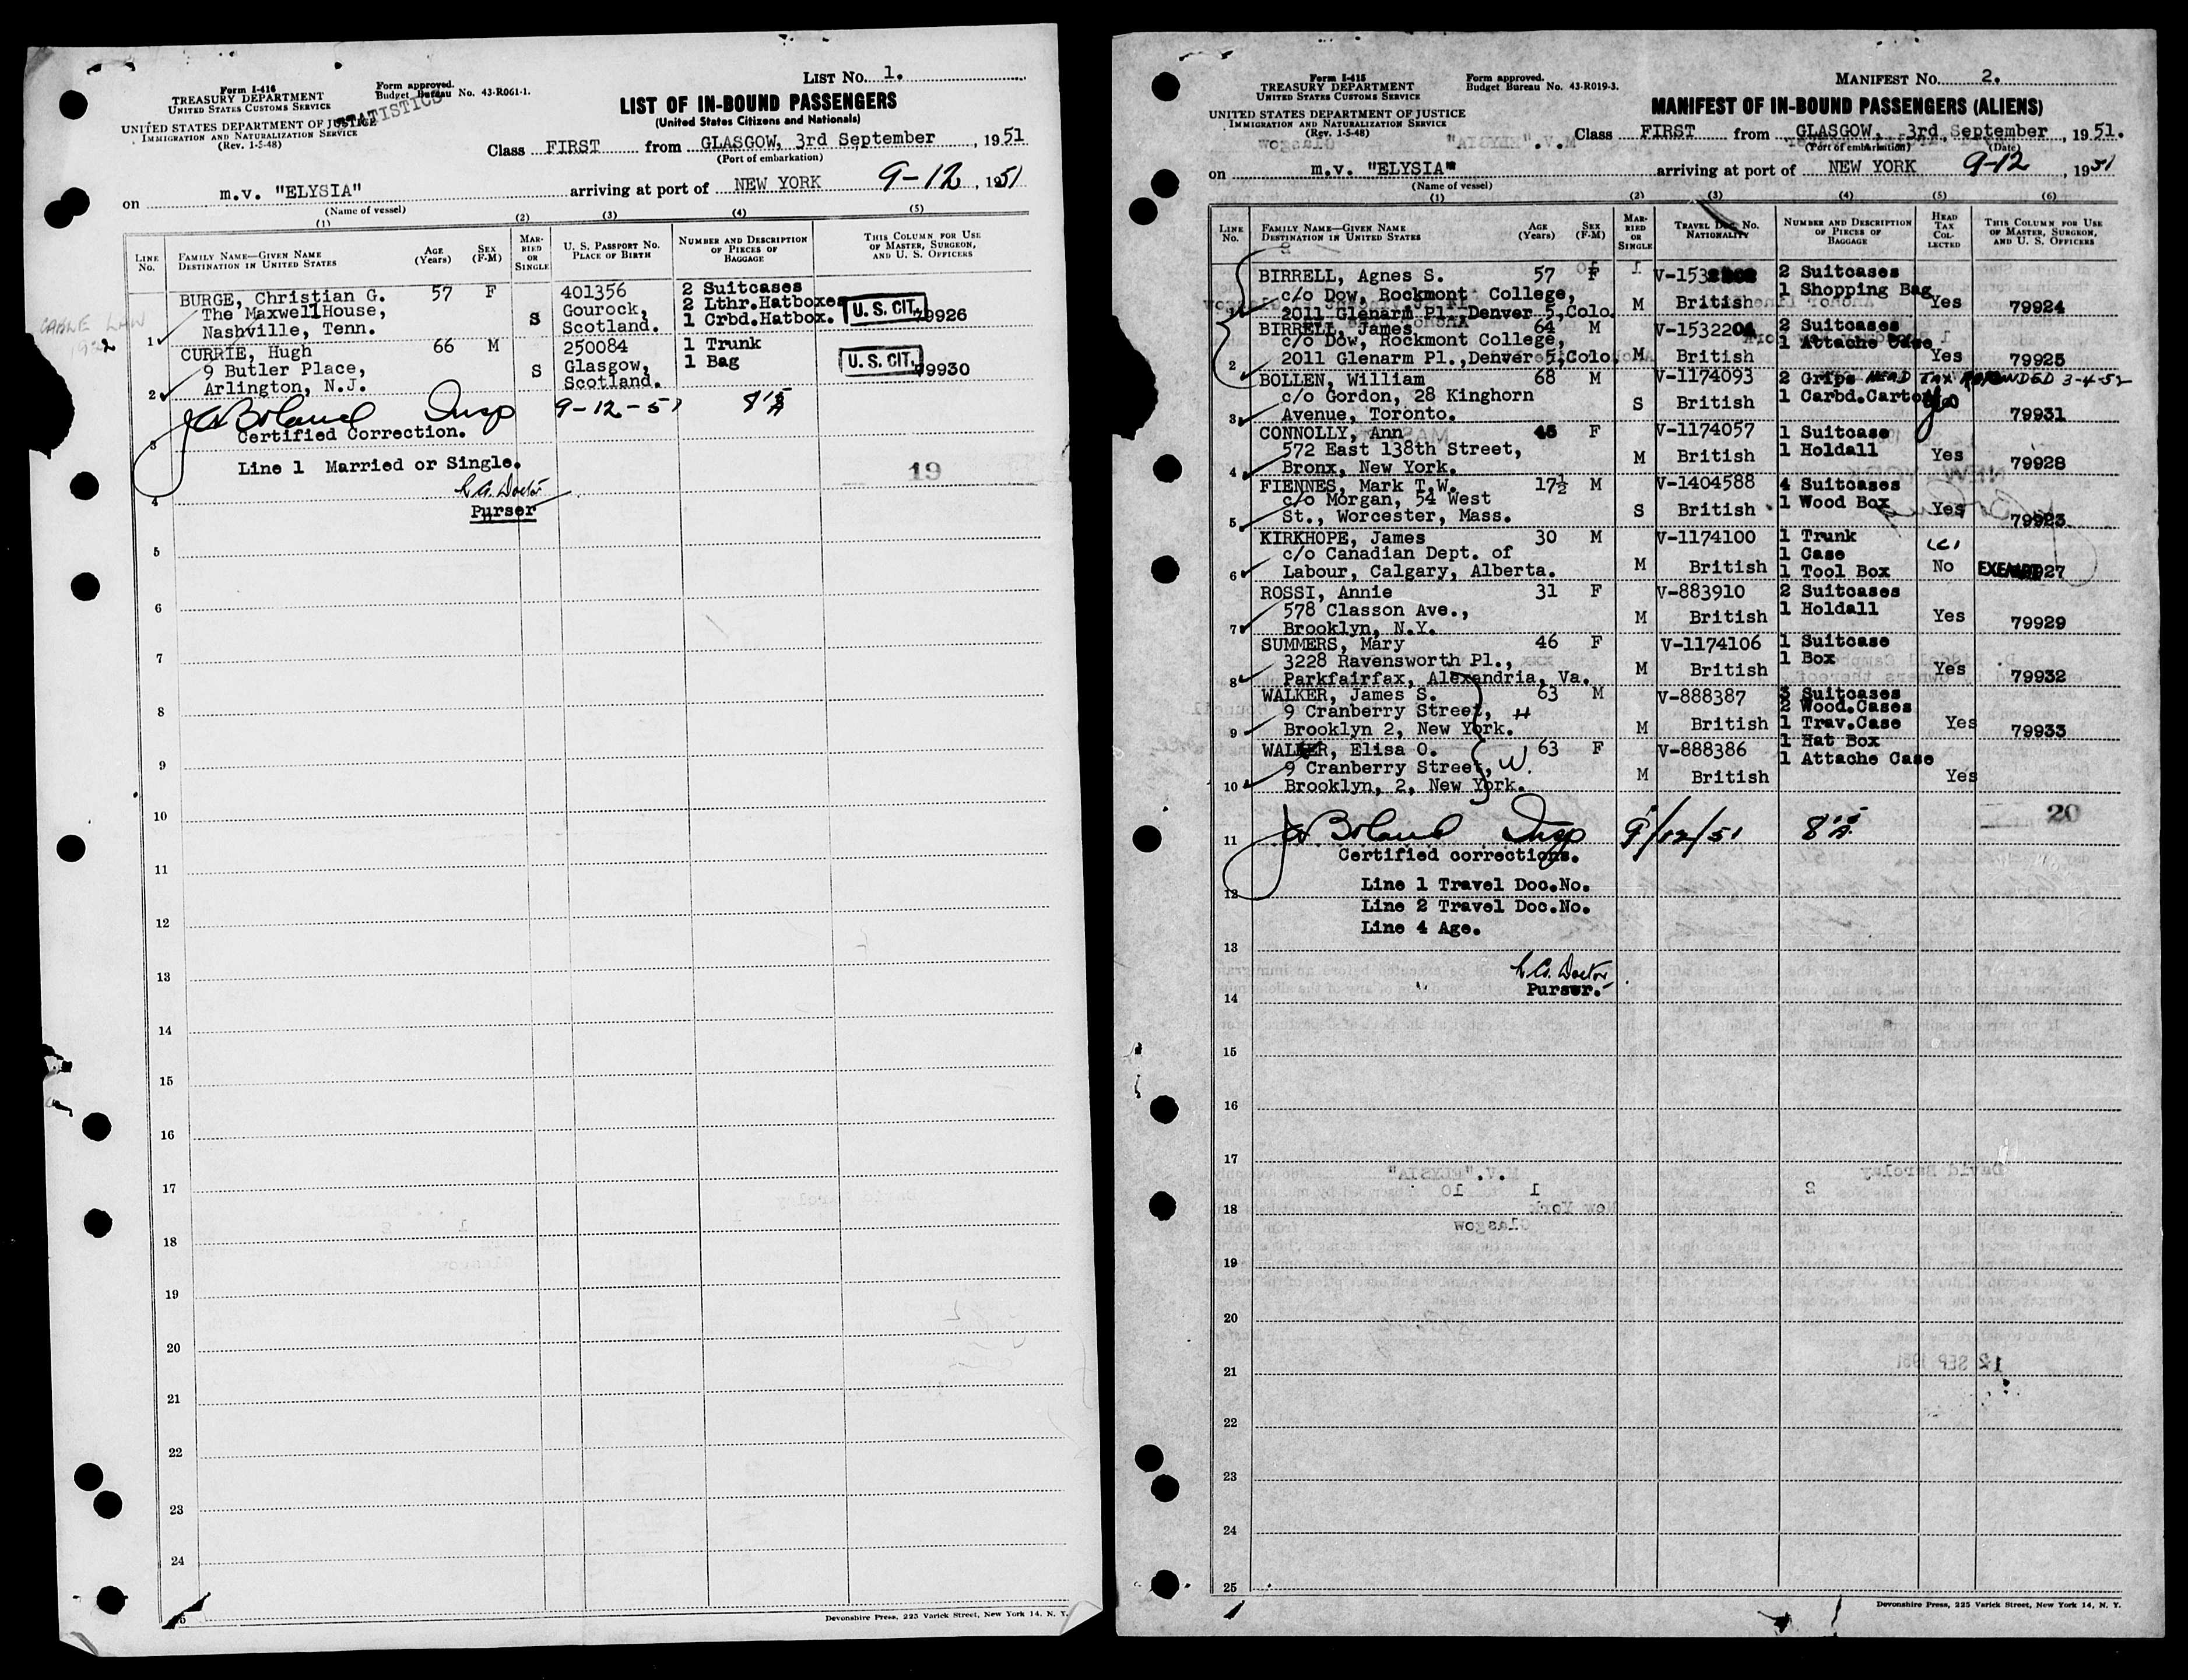 LIST NO. 1.
Form I-416
TREASURY DEPARTMENT
UNITED STATES CUSTOMS SERVICE
Form approved.
Budget Bureau No. 43-R061-1.
STATISTICS
UNITED STATES DEPARTMENT OF JUSTICE
IMMIGRATION AND NATURALIZATION SERVICE
(Rev. 1-5-48)
LIST OF IN-BOUND PASSENGERS
(United States Citizens and Nationals)
Class FIRST from GLASGOW, 3rd September, 1951
(Port of embarkation)
on m.v. "ELYSIA" arriving at port of NEW YORK 9-12, 1951
(Name of vessel)
(1) (2) (3) (4) (5)
LINE NO. FAMILY NAME—GIVEN NAME DESTINATION IN UNITED STATES AGE (Years) SEX (F-M) MARRIED OR SINGLE U. S. PASSPORT NO. PLACE OF BIRTH NUMBER AND DESCRIPTION OF PIECES OF BAGGAGE THIS COLUMN FOR USE OF MASTER, SURGEON, AND U. S. OFFICERS
CABLE LAW 1922
BURGE, Christian G. 57 F 401356 2 Suitcases
The Maxwell House, Gourock, 2 Lthr.Hatboxes U. S. CIT. 79926
1 Nashville, Tenn. S Scotland. 1 Crbd.Hatbox.
CURRIE, Hugh 66 M 250084 1 Trunk
9 Butler Place, S Glasgow, 1 Bag U. S. CIT. 79930
2 Arlington, N.J. Scotland.
Boland Insp 9-12-51
3 Certified Correction.
Line 1 Married or Single.
19
4 Doctor
Purser
5
6
7
8
9
10
11
12
13
14
15
16
17
18
19
20
21
22
23
24
Devonshire Press, 225 Varick Street, New York 14, N. Y.
MANIFEST NO. 2.
Form I-415
TREASURY DEPARTMENT
UNITED STATES CUSTOMS SERVICE
Form approved.
Budget Bureau No. 43-R019-3.
UNITED STATES DEPARTMENT OF JUSTICE
IMMIGRATION AND NATURALIZATION SERVICE
(Rev. 1-5-48)
MANIFEST OF IN-BOUND PASSENGERS (ALIENS)
Class FIRST from GLASGOW, 3rd September, 1951.
(Port of embarkation) (Date)
on m.v. "ELYSIA" arriving at port of NEW YORK 9-12, 1951
(Name of vessel)
(1) (2) (3) (4) (5) (6)
LINE NO. FAMILY NAME—GIVEN NAME DESTINATION IN UNITED STATES AGE (Years) SEX (F-M) MARRIED OR SINGLE TRAVEL DOC. NO. NATIONALITY NUMBER AND DESCRIPTION OF PIECES OF BAGGAGE HEAD TAX COLLECTED THIS COLUMN FOR USE OF MASTER, SURGEON, AND U. S. OFFICERS
BIRRELL, Agnes S. 57 F 2 Suitcases
c/o Dow, Rockmont College, M British 1 Shopping Bag Yes 79924
2011 Glenarm Pl., Denver 5, Colo.
BIRRELL, James 64 M V-1532204 2 Suitcases
c/o Dow, Rockmont College, 1 Attache Case
2 2011 Glenarm Pl., Denver 5, Colo. M British Yes 79925
BOLLEN, William 68 M V-1174093 2 Grips HEAD TAX REFUNDED 3-4-52
c/o Gordon, 28 Kinghorn S British 1 Carbd.Carton
3 Avenue, Toronto. 79931
CONNOLLY, Ann 45 F V-1174057 1 Suitcase
572 East 138th Street, M British 1 Holdall Yes 79928
4 Bronx, New York.
FIENNES, Mark T.W. 17½ M V-1404588 4 Suitcases
c/o Morgan, 54 West S British 1 Wood Box Yes 79923
5 St., Worcester, Mass.
KIRKHOPE, James 30 M V-1174100 1 Trunk
c/o Canadian Dept. of 1 Case
6 Labour, Calgary, Alberta. M British 1 Tool Box No EXEMPT 79927
ROSSI, Annie 31 F V-883910 2 Suitcases
578 Classon Ave., M British 1 Holdall Yes 79929
7 Brooklyn, N.Y.
SUMMERS, Mary 46 F V-1174106 1 Suitcase
3228 Ravensworth Pl., M British 1 Box Yes 79932
8 Parkfairfax, Alexandria, Va.
WALKER, James S. 63 M V-888387 3 Suitcases
9 Cranberry Street, H 2 Wood.Cases
9 Brooklyn 2, New York. M British 1 Trav.Case Yes 79933
WALKER, Elisa O. 63 F V-888386 1 Hat Box
9 Cranberry Street, W. 1 Attache Case
10 Brooklyn, 2, New York. M British Yes
20
11 Boland Insp 9/12/51
Certified corrections.
12 Line 1 Travel Doc.No.
Line 2 Travel Doc.No.
Line 4 Age.
13
Doctor
14 Purser.
15
16
17
18
19
20
21
22
23
24
25
Devonshire Press, 225 Varick Street, New York 14, N. Y.